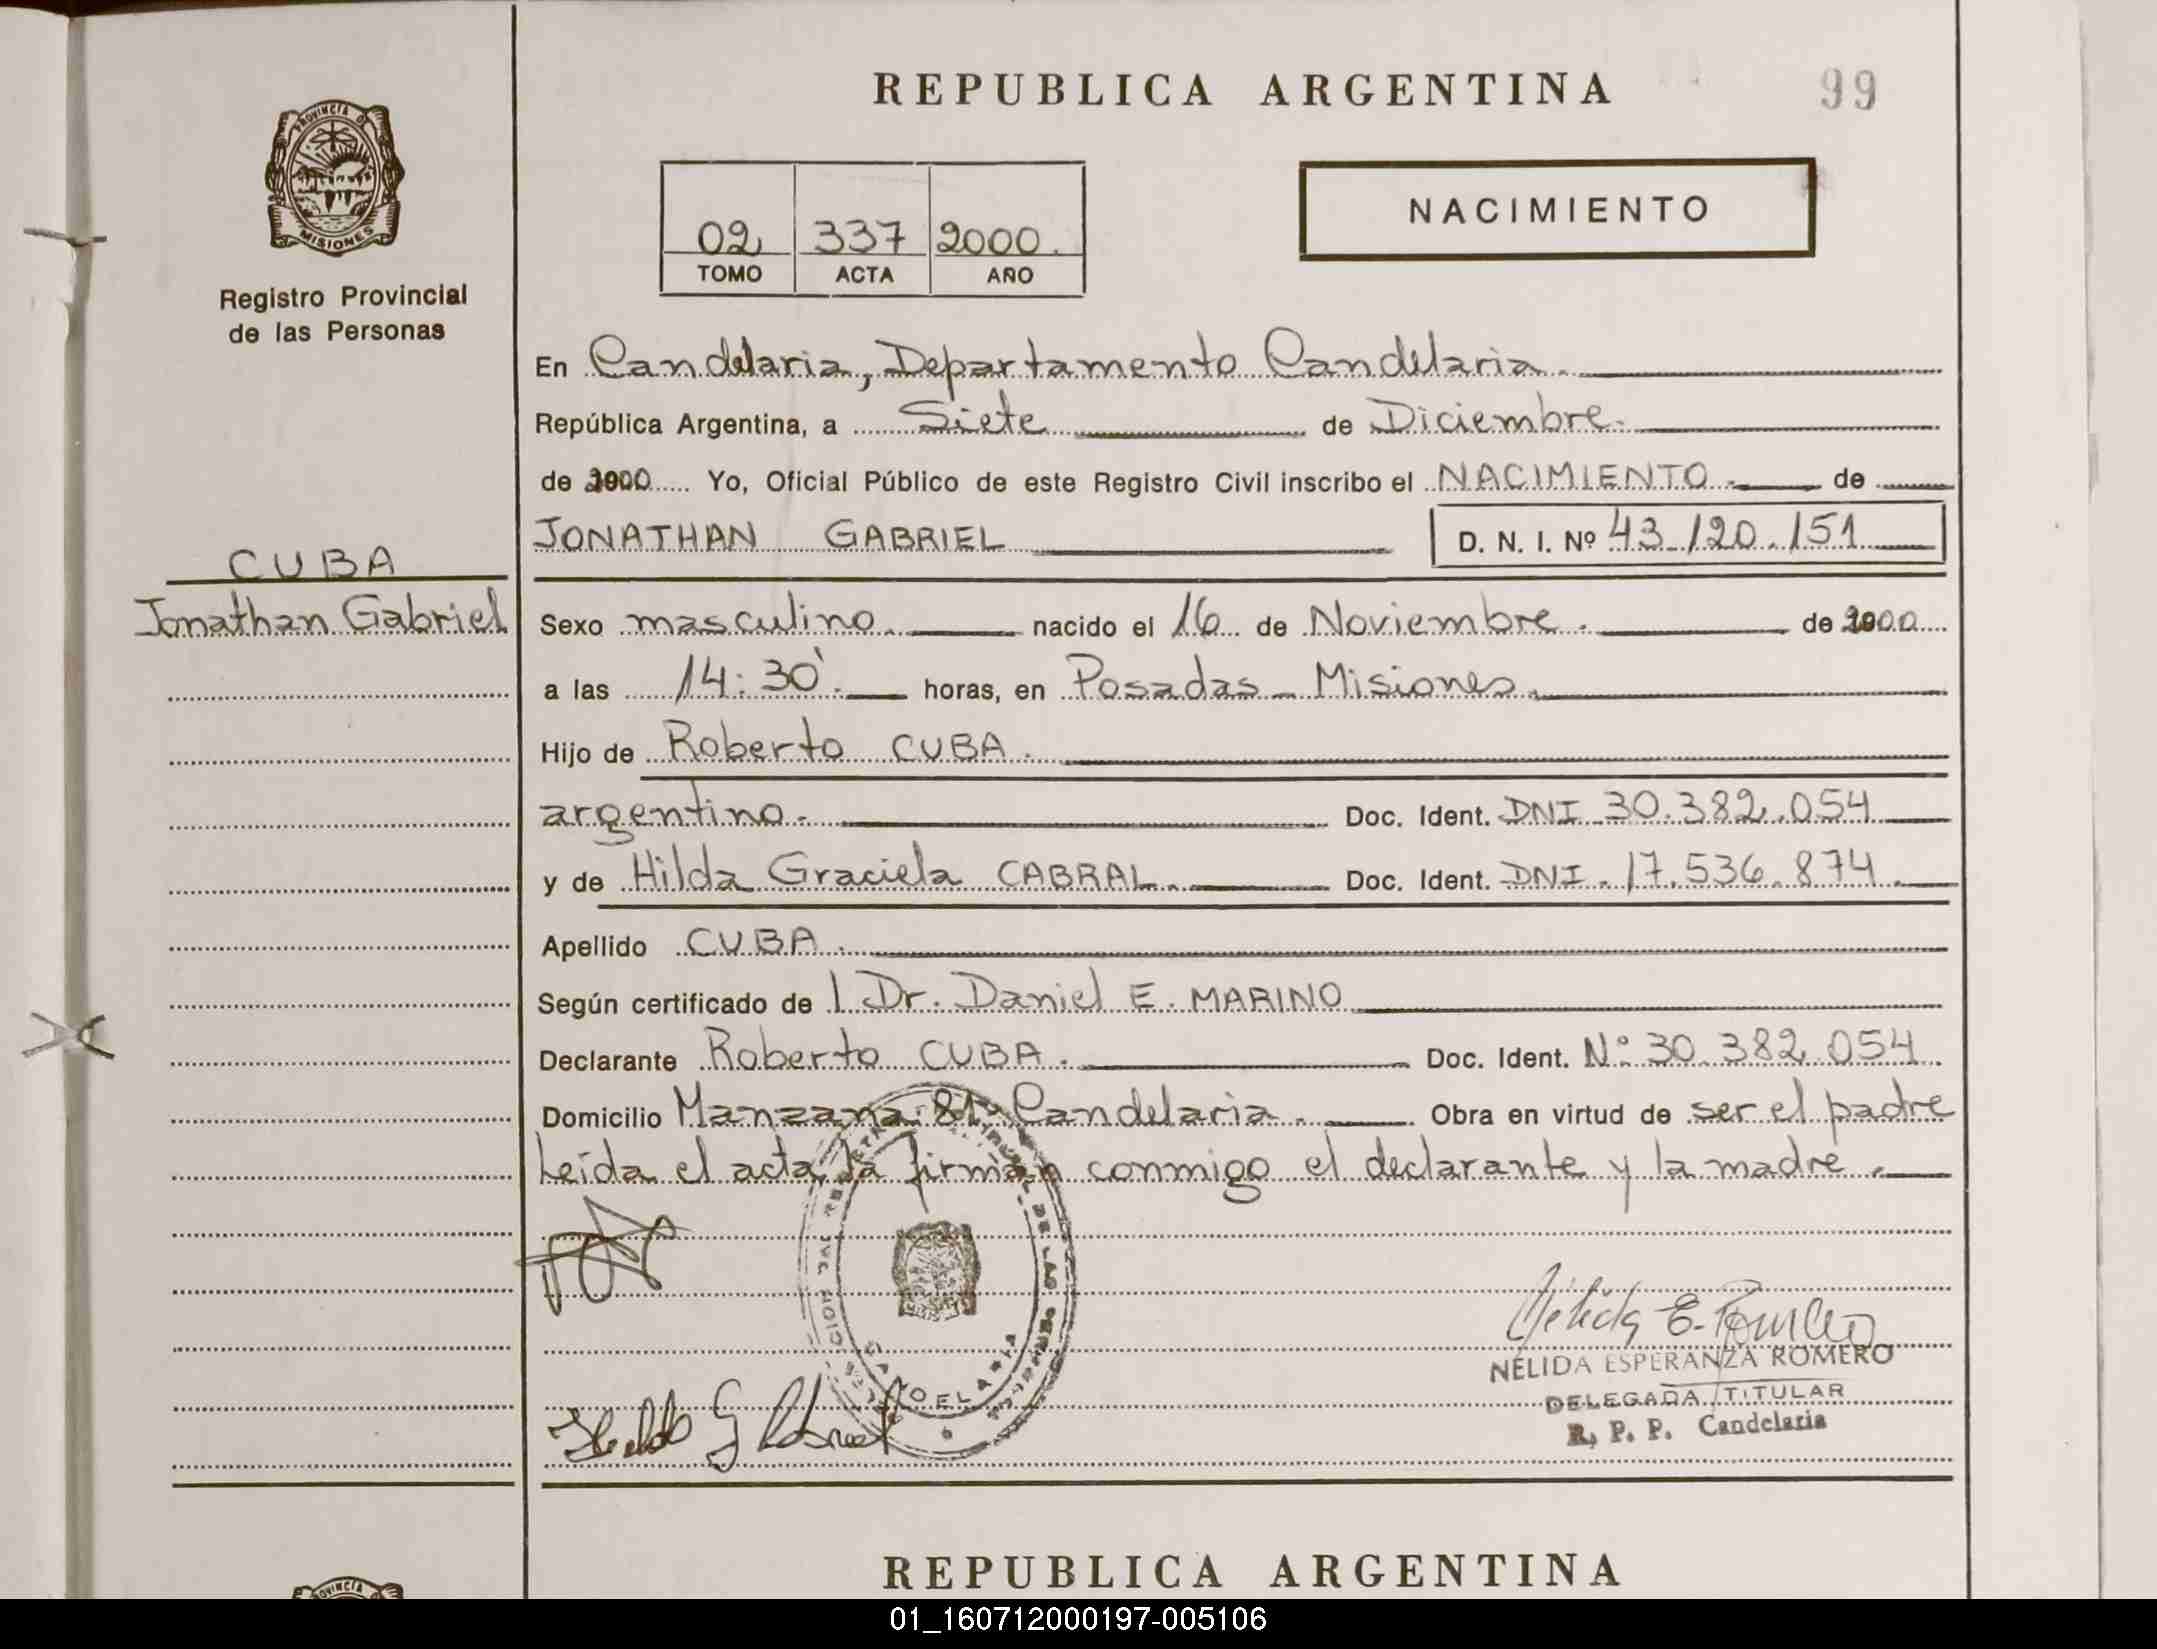 REPUBLICA ARGENTINA
99
PROVINCIA DE
MISIONES
Registro Provincial
de las Personas
02 337 2000
TOMO ACTA AÑO
NACIMIENTO
En Candelaria, Departamento Candelaria
República Argentina, a Siete de Diciembre
de 2000 Yo, Oficial Público de este Registro Civil inscribo el NACIMIENTO de
JONATHAN GABRIEL D. N. I. Nº 43.120.151
CUBA
Jonathan Gabriel
Sexo masculino nacido el 16 de Noviembre de 2000
a las 14:30 horas, en Posadas - Misiones
Hijo de Roberto CUBA
argentino Doc. Ident. DNI 30.382.054
y de Hilda Graciela CABRAL Doc. Ident. DNI. 17.536.874
Apellido CUBA
Según certificado de l Dr. Daniel E. MARINO
Declarante Roberto CUBA Doc. Ident. Nº 30.382.054
Domicilio Manzana 81 Candelaria Obra en virtud de ser el padre
Leída el acta la firman conmigo el declarante y la madre
DE LAS PERSONAS
CANDELARIA
Nélida E. Romero
NÉLIDA ESPERANZA ROMERO
DELEGADA TITULAR
R. P. P. Candelaria
Hilda G Cabral
REPUBLICA ARGENTINA
PROVINCIA
01_160712000197-005106